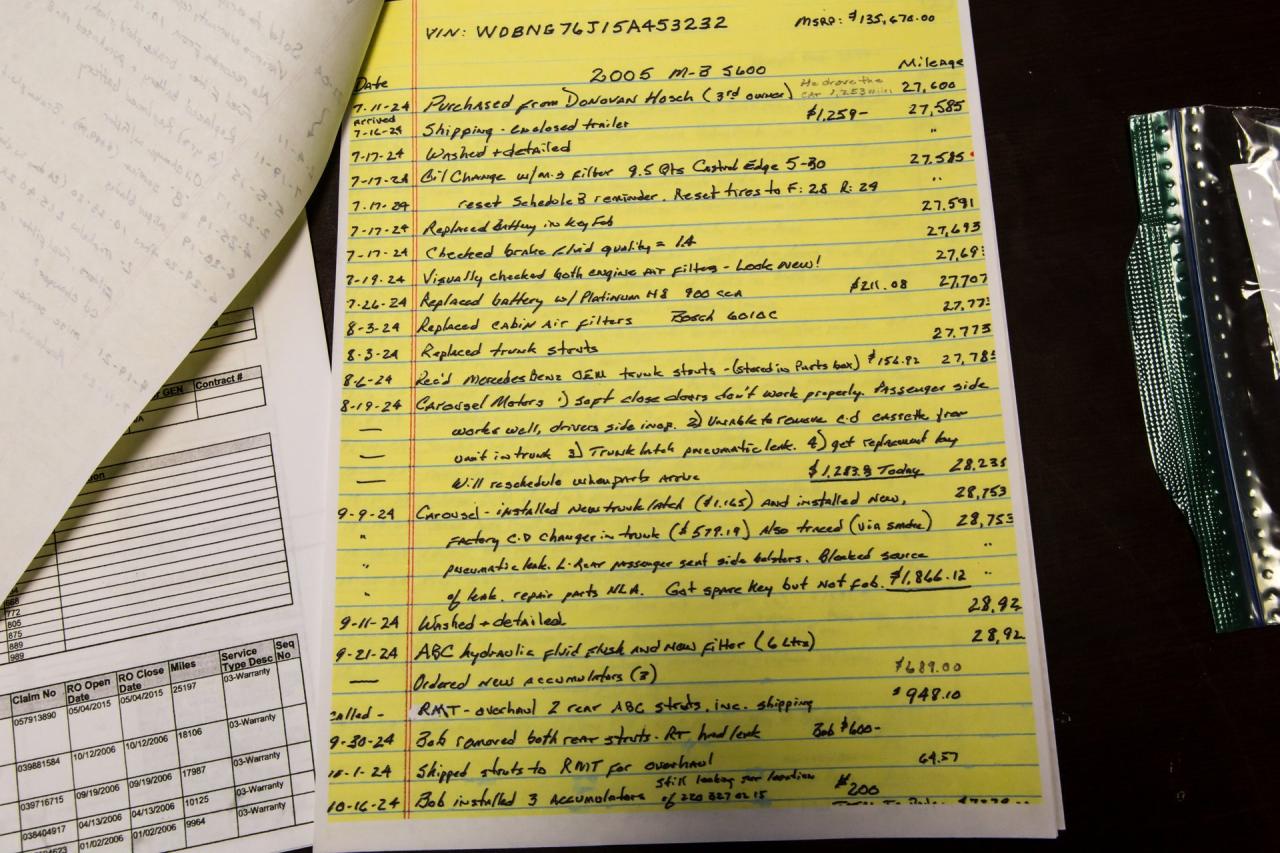 VIN: WDBNG76J15A453232 MSRP: $135,670.00
2005 M-B S600
Date Mileage
7-11-24 Purchased from Donovan Hosch (3rd owner) He drove the car 1,253 miles 27,600
arrived
7-16-24 Shipping - enclosed trailer $1,259- 27,585
7-17-24 Washed + detailed "
7-17-24 Oil Change w/M-B filter 9.5 Qts Castrol Edge 5-30 27,585
7-17-24 reset Schedule B reminder. Reset tires to F: 28 R: 29 "
7-17-24 Replaced Battery in key Fob 27,591
7-17-24 Checked brake fluid quality = 1A 27,693
7-19-24 Visually checked both engine air filters - Look new! 27,69
7-26-24 Replaced battery w/ Platinum H8 900 CCA $211.08 27,707
8-3-24 Replaced cabin air filters Bosch 6010C 27,773
8-3-24 Replaced trunk struts 27,773
8-6-24 Rec'd Mercedes Benz OEM trunk struts - (stored in Parts box) $156.92 27,785
8-19-24 Carousel Motors 1) soft close doors don't work properly. Passenger side
— works well, drivers side inop. 2) Unable to remove c.d cassette from
— unit in trunk 3) Trunk latch pneumatic leak. 4) get replacement key
— Will reschedule when parts arrive $1,283.- Today 28,235
9-9-24 Carousel - installed new trunk latch ($1,165) and installed new, 28,753
" factory C.D changer in trunk ($579.19) Also traced (via smoke) 28,753
" pneumatic leak. L-Rear passenger seat side bolsters. Blocked source "
" of leak, repair parts NLA. Got spare key but not fob. $1,866.12 "
9-11-24 Washed + detailed 28,92
9-21-24 ABC hydraulic fluid flush and new filter (6 Ltrs) 28,92
— Ordered new accumulators (3) $689.00
called - RMT - overhaul 2 rear ABC struts, inc. shipping $948.10
9-30-24 Bob removed both rear struts - RT had leak Bob $600-
10-1-24 Shipped struts to RMT for overhaul 64.57
10-16-24 Bob installed 3 Accumulators still looking for location of 220 327 02 15 $200
GEN Contract #
772
805
875
889
989
Claim No RO Open Date RO Close Date Miles Service Type Desc Seq No
057913890 05/04/2015 05/04/2015 25197 03-Warranty
039881584 10/12/2006 10/12/2006 18106 03-Warranty
039716715 09/19/2006 09/19/2006 17987 03-Warranty
038404917 04/13/2006 04/13/2006 10125 03-Warranty
01/02/2006 01/02/2006 9964 03-Warranty